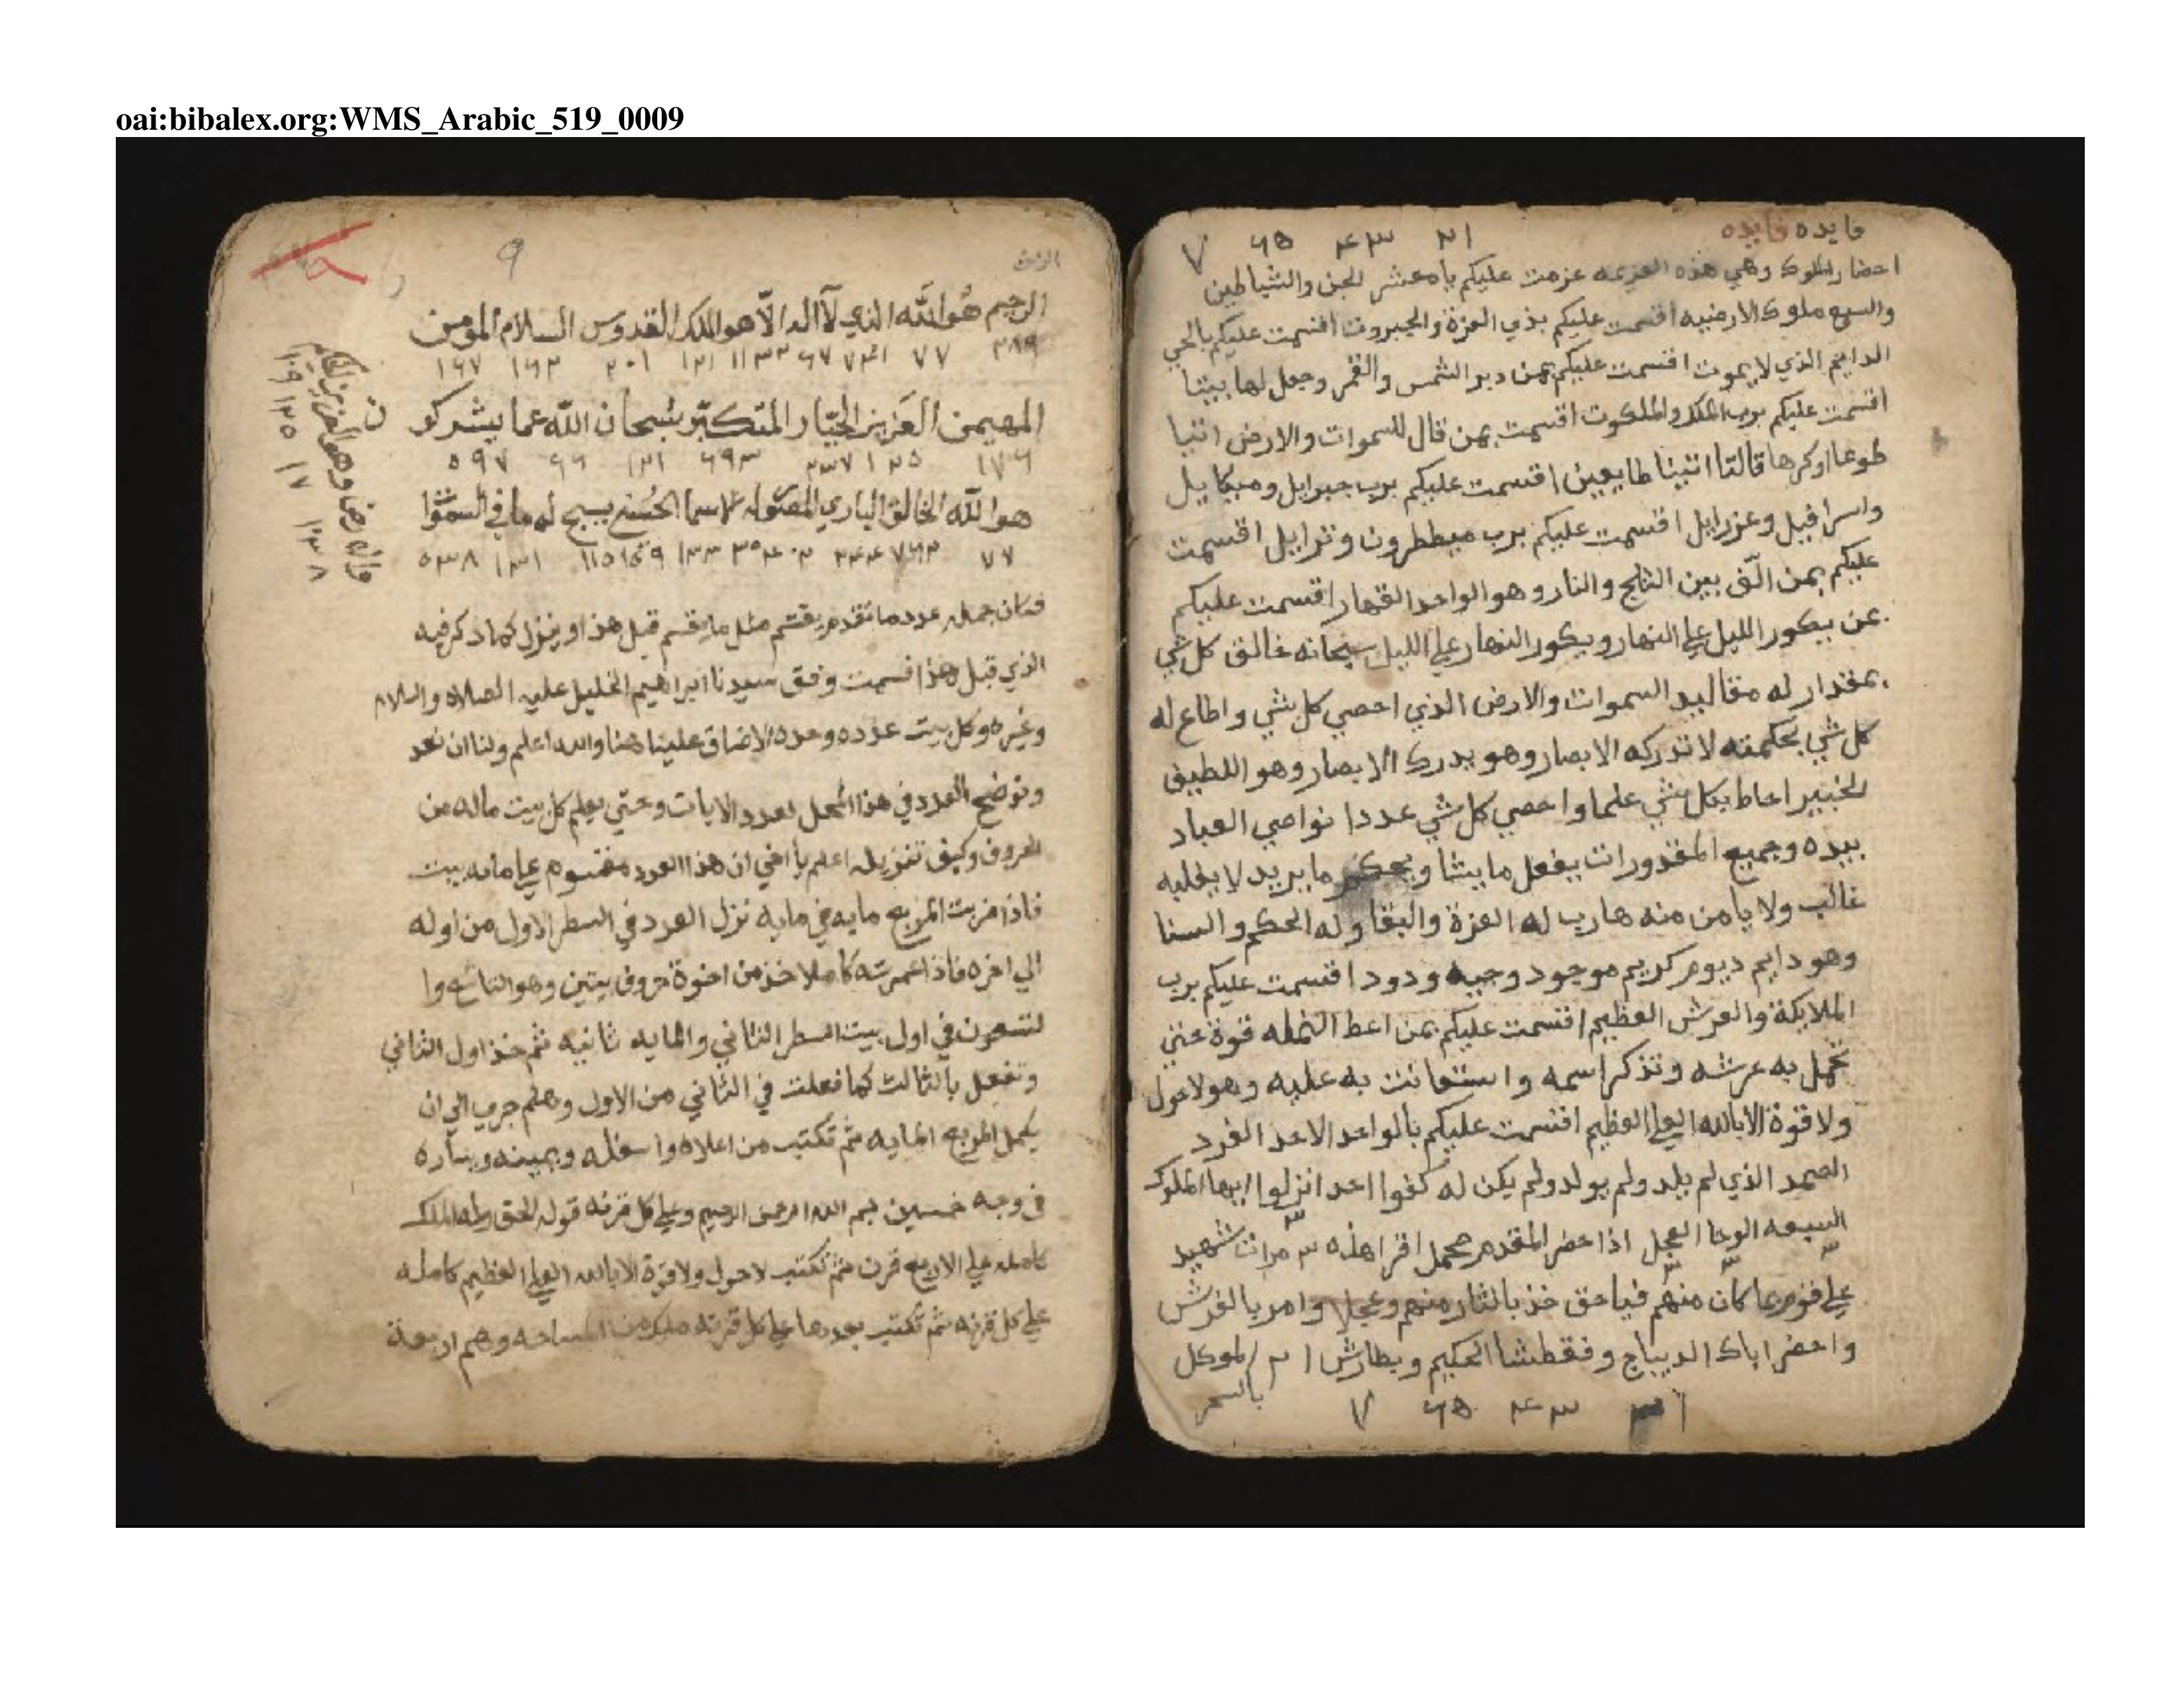 oai:bibalex.org:WMS_Arabic_519_0009
فايده فايده
احضار الملوك وهي هذه العزيمه عزمت عليكم يا معشر الجن والشياطين
والسبع ملوك الارضيه اقسمت عليكم بذي العزة والجبروت اقسمت عليكم بالحي
الدايم الذي لا يموت اقسمت عليكم بمن دبر الشمس والقمر وجعل لها بيتا
اقسمت عليكم برب الملك والملكوت اقسمت بمن قال للسموات والارض اتيا
طوعا او كرها قالتا اتينا طايعين اقسمت عليكم برب جبرايل وميكايل
واسرافيل وعزرايل اقسمت عليكم برب ميططرون وترايل اقسمت
عليكم بمن الّف بين الثلج والنار وهو الواحد القهار اقسمت عليكم
بمن يكور الليل علي النهار ويكور النهار علي الليل سبحانه خالق كل شي
بمقدار له مقاليد السموات والارض الذي احصي كل شي واطاع له
كل شي بحكمته لا تدركه الابصار وهو يدرك الابصار وهو اللطيف
الخبير احاط بكل شي علما واحصي كل شي عددا نواصي العباد
بيده وجميع المقدورات يفعل ما يشا ويحكم ما يريد لا يغلبه
غالب ولا يامن منه هارب له العزة والبقا وله الحكم والسنا
وهو دايم ديوم كريم موجود وجيه ودود اقسمت عليكم برب
الملايكة والعرش العظيم اقسمت عليكم بمن اعطا النمله قوة حتي
تحمل به عرشه وتذكر اسمه واستعانت به عليه وهو لا حول
ولا قوة الا بالله العلي العظيم اقسمت عليكم بالواحد الاحد الفرد
الصمد الذي لم يلد ولم يولد ولم يكن له كفوا احد انزلوا ايها الملوك
السبعه الوحا العجل اذا حضر المقدم محمل اقرا هذه ٣ مرات شهيد
علي قوم عما كان منهم فياحق خذ بالثار منهم وعجلا وامر بالفرش
واحضر اباك الديباج وفقطشا الحكيم وبطارش الموكل
بالسحر
٩
الرحيم هُو اللَّه الذي لا اله الا هو الملك القدوس السلام المؤمن
المهيمن العَزيز الجبّار المتكبّر سُبحان اللّه عما يشركو
ن
هو اللَّه الخالق الباري المصوّر له الاسما الحُسني يسبح له ما في السموا
فكان جمله عدد ما تقدم يقسم مثل ما يقسم قبل هذا وينزل كما ذكر فيه
الذي قبل هذا قسمت وفق سيدنا ابراهيم الخليل عليه الصلاه والسلام
وغيره وكل بيت عدده وحده لا ضاق علينا هنا والله اعلم ولنا ان نعد
ونوضح العدد في هذا المحل لعدد الايات وحتي يعلم كل بيت ماله من
الحروف وكيف تنزيله اعلم يا اخي ان هذا العدد مقسوم علي مايه بيت
فاذا ضربت المربع مايه في مايه نزل العدد في السطر الاول من اوله
الي اخره فاذا عمرته كاملا خذ من اخره حروف بيتين وهو التاسع وا
لتسعون في اول بيت السطر الثاني والمايه ثانيه ثم خذ اول الثاني
وتفعل بالثالث كما فعلت في الثاني من الاول وهلم جري الي ان
يكمل المربع المايه ثم تكتب من اعلاه واسفله ويمينه ويساره
في وجه خمسين بسم الله الرحمن الرحيم وعلي كل قرنه قوله الحق وله الملك
كامله علي الاربع قرن ثم تكتب لا حول ولا قوة الا بالله العلي العظيم كامله
علي كل قرنه ثم تكتب بعدها علي كل قرنه ملك من المساحه وهم اربعة